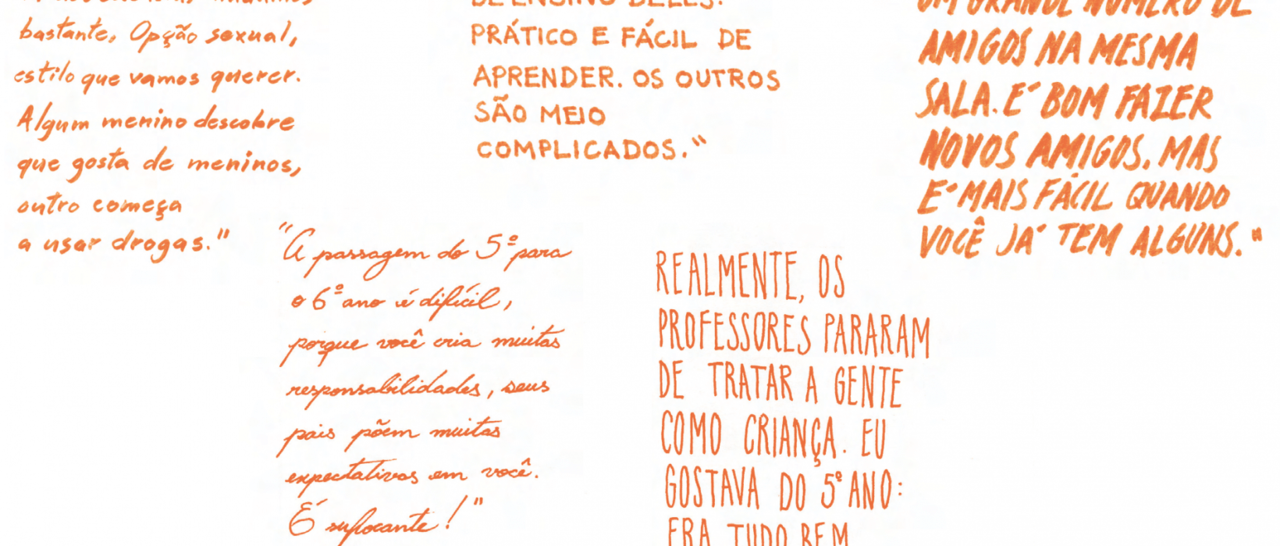 bastante, Opção sexual,
estilo que vamos querer.
Algum menino descobre
que gosta de meninos,
outro começa
a usar drogas."
DE ENSINO DELES:
PRÁTICO E FÁCIL DE
APRENDER. OS OUTROS
SÃO MEIO
COMPLICADOS."
UM GRANDE NÚMERO DE
AMIGOS NA MESMA
SALA. É BOM FAZER
NOVOS AMIGOS, MAS
É MAIS FÁCIL QUANDO
VOCÊ JÁ TEM ALGUNS."
"A passagem do 5º para
o 6º ano é difícil,
porque você cria muitas
responsabilidades, seus
pais põem muitas
expectativas em você.
É sufocante!"
REALMENTE, OS
PROFESSORES PARARAM
DE TRATAR A GENTE
COMO CRIANÇA. EU
GOSTAVA DO 5º ANO:
ERA TUDO BEM